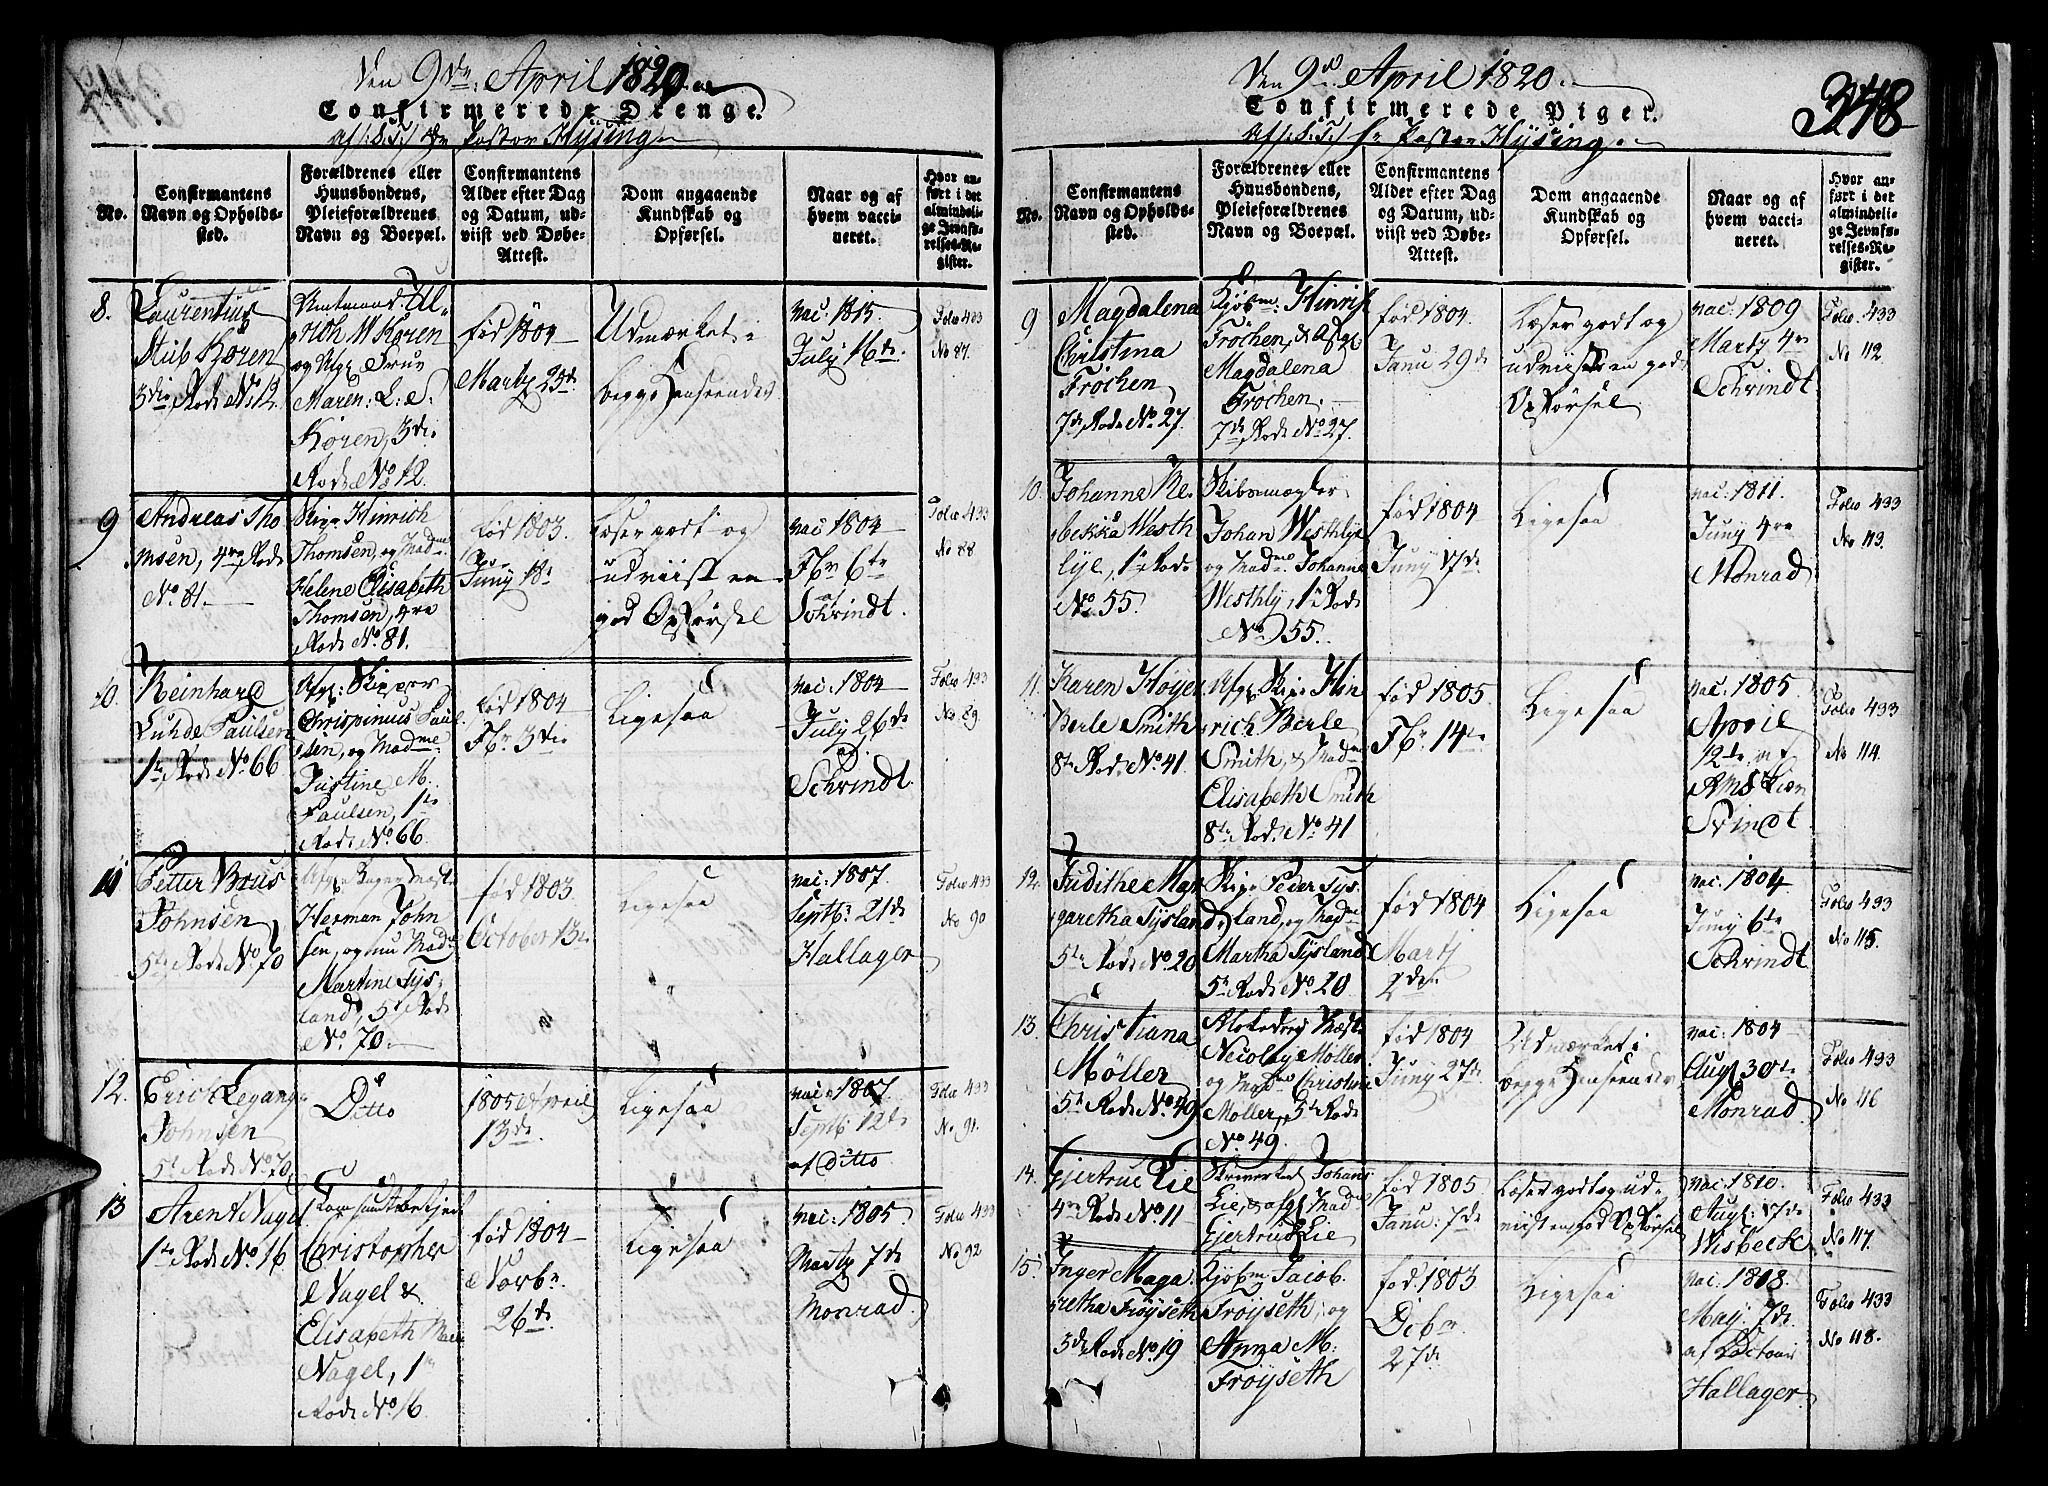 Den 9de April 1820.
Confirmerede Drenge.
af (S.T.) Hr Pastor Hysing
No.
Confirmantens
Navn og Opholds-
sted.
Forældrenes eller
Huusbondens,
Pleieforældrenes
Navn og Boepæl.
Confirmantens
Alder efter Dag
og Datum, ud-
viist ved Døbe-
Attest.
Dom angaaende
Kundskab og
Opførsel.
Naar og af
hvem vacci-
neret.
Hvor an-
ført i det
almindeli-
ge Jevnfø-
relses-Re-
gister.
8.
Laurentius
Stub Koren
3die Rode No 12
Amtmand Ul-
rich W Koren
og Afg: Frue
Maren: L: S.
Koren, 3die
Rode No 12
fød 1804
Martz 23de
Udmærket i
begge Henseender
vac. 1815.
July 16de.
Folio 493
No 87.
9
Andreas Tho
msen, 4re Rode
No. 81.
Skipr Hinrich
Thomsen, og Madme
Helene Elisabeth
Thomsen, 4re
Rode No. 81.
fød 1803.
Juny 18de
Læser godt og
udviist en
god Opførsel
vac 1804
Fbr 6te
af
Schvindt.
Folio 493
No 88
10.
Reinhard
Luhde Paulsen
1te Rode No. 66
Afg: Skipper
Chrispinius Paul-
sen, og Madme
Justine M.
Paulsen, 1te
Rode No. 66
fød 1804
Fbr 3die
Ligesaa
vac: 1804
July 26de
af
Schvindt.
Folio 493
No 89.
11
Petter Brus
Johnsen
5te Rode No. 70
Afg: Bager Mest
Herman John
sen, og nu Madme
Martine Tys-
land, 5te Rode
No. 70.
fød 1803
October 13de
Ligesaa
vac: 1807.
Septb: 21de
Hallager
Folio 493
No 90
12.
Erich Legang
Johnsen
5te Rode No. 70
Ditto
1805 April
13de.
Ligesaa
vac: 1807.
Septb 12de
af Ditto
Folio 493
No 91.
13
Arent Nagel
1te Rode No. 16
Christopher
Nagel &
Elisabeth
Nagel, 1te
Rode No. 16.
fød 1804
Novbr.
26de.
Ligesaa
vac: 1805.
Martz 7de
Monrad.
Folio 493
No 92
Den 9de April 1820.
Confirmerede Piger.
348
af (S.T.) Hr Pastor Hysing.
No.
Confirmantens
Navn og Opholds-
sted.
Forældrenes eller
Huusbondens,
Pleieforældrenes
Navn og Boepæl.
Confirmantens
Alder efter Dag
og Datum, ud-
viist ved Døbe-
Attest.
Dom angaaende
Kundskab og
Opførsel.
Naar og af
hvem vacci-
neret.
Hvor an-
ført i det
almindeli-
ge Jevnfø-
relses-Re-
gister.
9
Magdalena
Christina
Frøchen
7de Rode No. 27.
Kjøbm: Hinrich
Frøchen, & Afg:
Magdalena
Frøchen.
7de Rode No. 27.
fød 1804.
Janu 29de
Læser godt og
udviiser en god
Opførsel
vac. 1809
Martz 4re
Schvindt
Folio 493
No 112.
10.
Johanne Re-
bekka Westh
lye, 1te Rode
No 55.
Skibsmægler
Johan Westhlye
og Madme Johanne
Westhly, 1te Rode
No 55.
fød 1804
Juny 17de
Ligesaa
vac: 1811.
Juny 4re
Monrad
Folio 493
No 113.
11.
Karen Høyer
Berle Smith
8te Rode No. 41.
Afg: Skipr Hin
rich Berle
Smith, & Madme
Elisabeth Smith
8te Rode No 41
fød 1805
Fbr 14de
Ligesaa
vac. 1805.
April
12de af
Svindt
Folio 493
No 114.
12.
Judithe Mar
garetha Tysland
5te Rode No. 20
Skipr Peder Tys-
land, og Madme
Martha Tysland
5te Rode No. 20
fød 1804
Martz
2de.
Ligesaa
vac. 1804
Juny 6te
Schvindt
Folio 493
No 115.
13.
Christiana
Møller
5te Rode No. 49
Nicolay Møller
og Madme Christine
Møller, 5te Rode
No. 49.
fød 1804
Juny 27de
Udmærket i
begge Henseender
vac: 1804
Augt 30te
Monrad
Folio 493
No 116
14.
Gjertrue Lie
4re Rode No. 11
Johans
Lie, & afg: Madme
Gjertrud Lie
fød 1805
Janu: 7de
Læser godt og ud-
viist en god Opførsel
vac: 1810.
Augt: 17de
Wisbeck
Folio 493
No 117.
15.
Inger Marga
retha Frøyseth
3de Rode No. 19
Kjøbm Jacob
Frøyseth, og
Anna M:
Frøyseth
fød 1803
Decbr.
27de
Ligesaa
vac. 1818.
May 7de
af Doctor
Hallager
Folio 493
No 118.